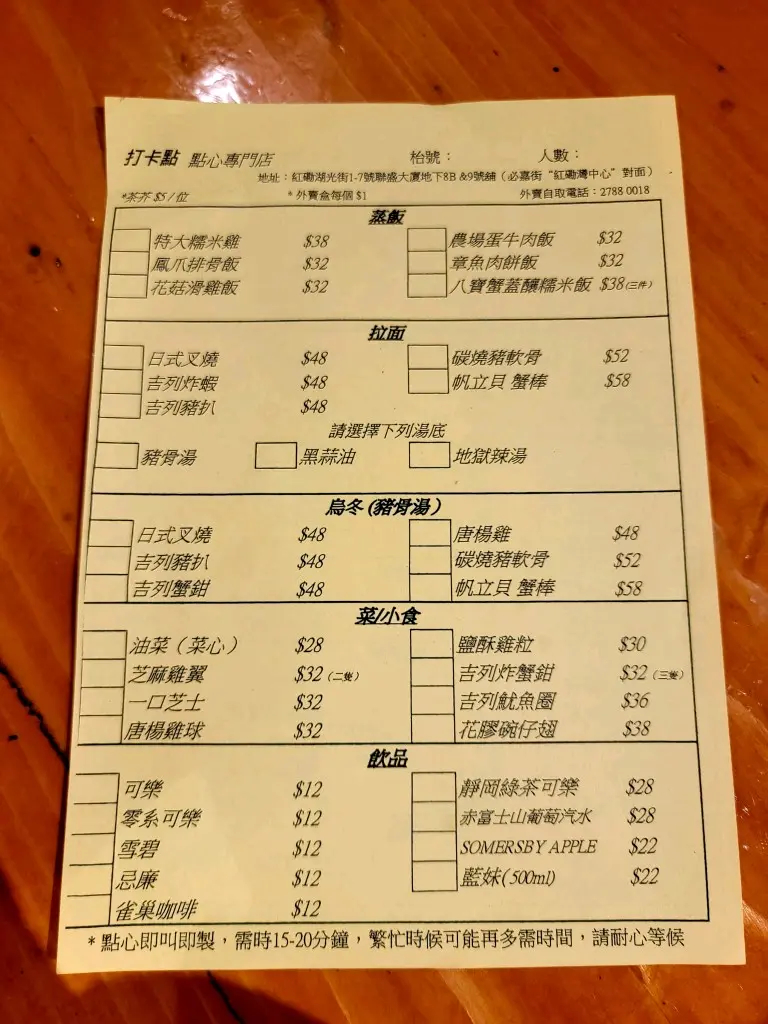 打卡點 點心專門店 枱號： 人數：
地址：紅磡湖光街1-7號聯盛大廈地下8B &9號舖（必嘉街“紅磡灣中心”對面）
*茶芥 $5/位 *外賣盒每個 $1 外賣自取電話：2788 0018
蒸飯
特大糯米雞 $38 農場蛋牛肉飯 $32
鳳爪排骨飯 $32 章魚肉餅飯 $32
花菇滑雞飯 $32 八寶蟹蓋釀糯米飯 $38(三件)
拉面
日式叉燒 $48 碳燒豬軟骨 $52
吉列炸蝦 $48 帆立貝 蟹棒 $58
吉列豬扒 $48
請選擇下列湯底
豬骨湯 黑蒜油 地獄辣湯
烏冬(豬骨湯)
日式叉燒 $48 唐楊雞 $48
吉列豬扒 $48 碳燒豬軟骨 $52
吉列蟹鉗 $48 帆立貝 蟹棒 $58
菜/小食
油菜（菜心） $28 鹽酥雞粒 $30
芝麻雞翼 $32(二隻) 吉列炸蟹鉗 $32(三隻)
一口芝士 $32 吉列魷魚圈 $36
唐楊雞球 $32 花膠碗仔翅 $38
飲品
可樂 $12 靜岡綠茶可樂 $28
零系可樂 $12 赤富士山葡萄汽水 $28
雪碧 $12 SOMERSBY APPLE $22
忌廉 $12 藍妹(500ml) $22
雀巢咖啡 $12
*點心即叫即製，需時15-20分鐘，繁忙時候可能再多需時間，請耐心等候